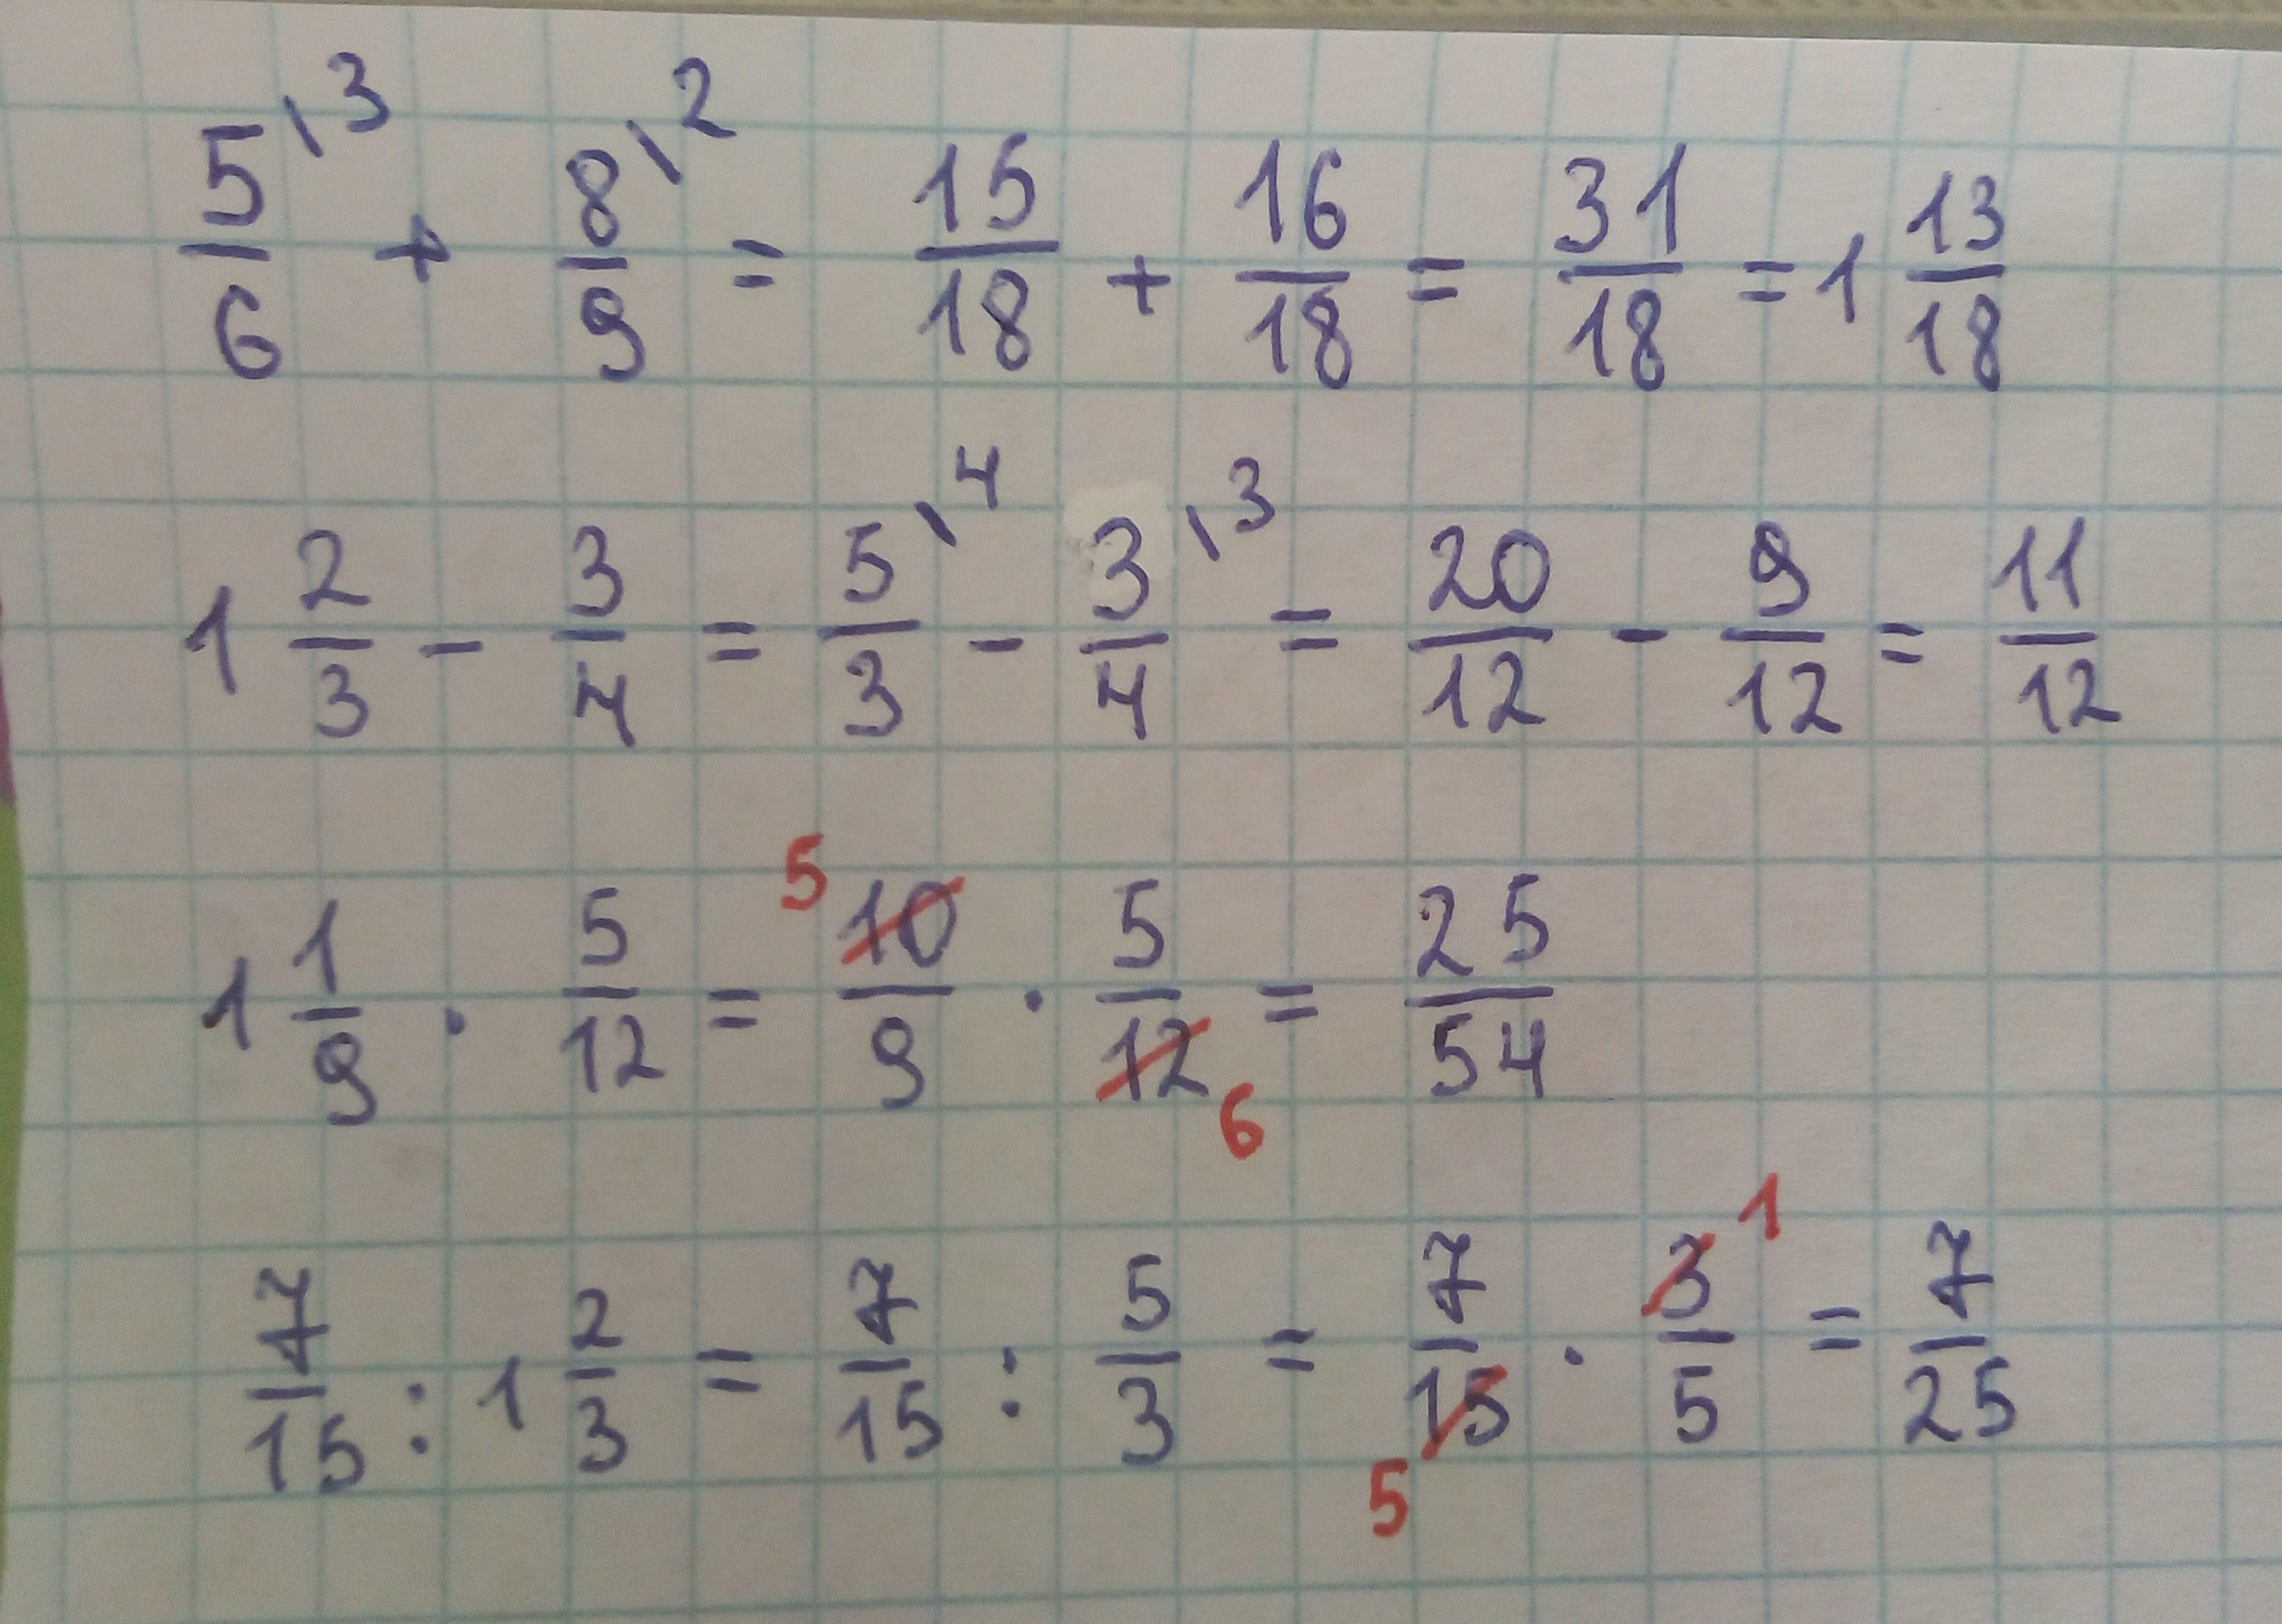 5/6\3 + 8/9\2 = 15/18 + 16/18 = 31/18 = 1 13/18
1 2/3 - 3/4 = 5/3\4 - 3/4\3 = 20/12 - 9/12 = 11/12
1 1/9 · 5/12 = 5 10/9 · 5/12 6 = 25/54
7/15 : 1 2/3 = 7/15 : 5/3 = 7/15 5 · 3/5 1 = 7/25